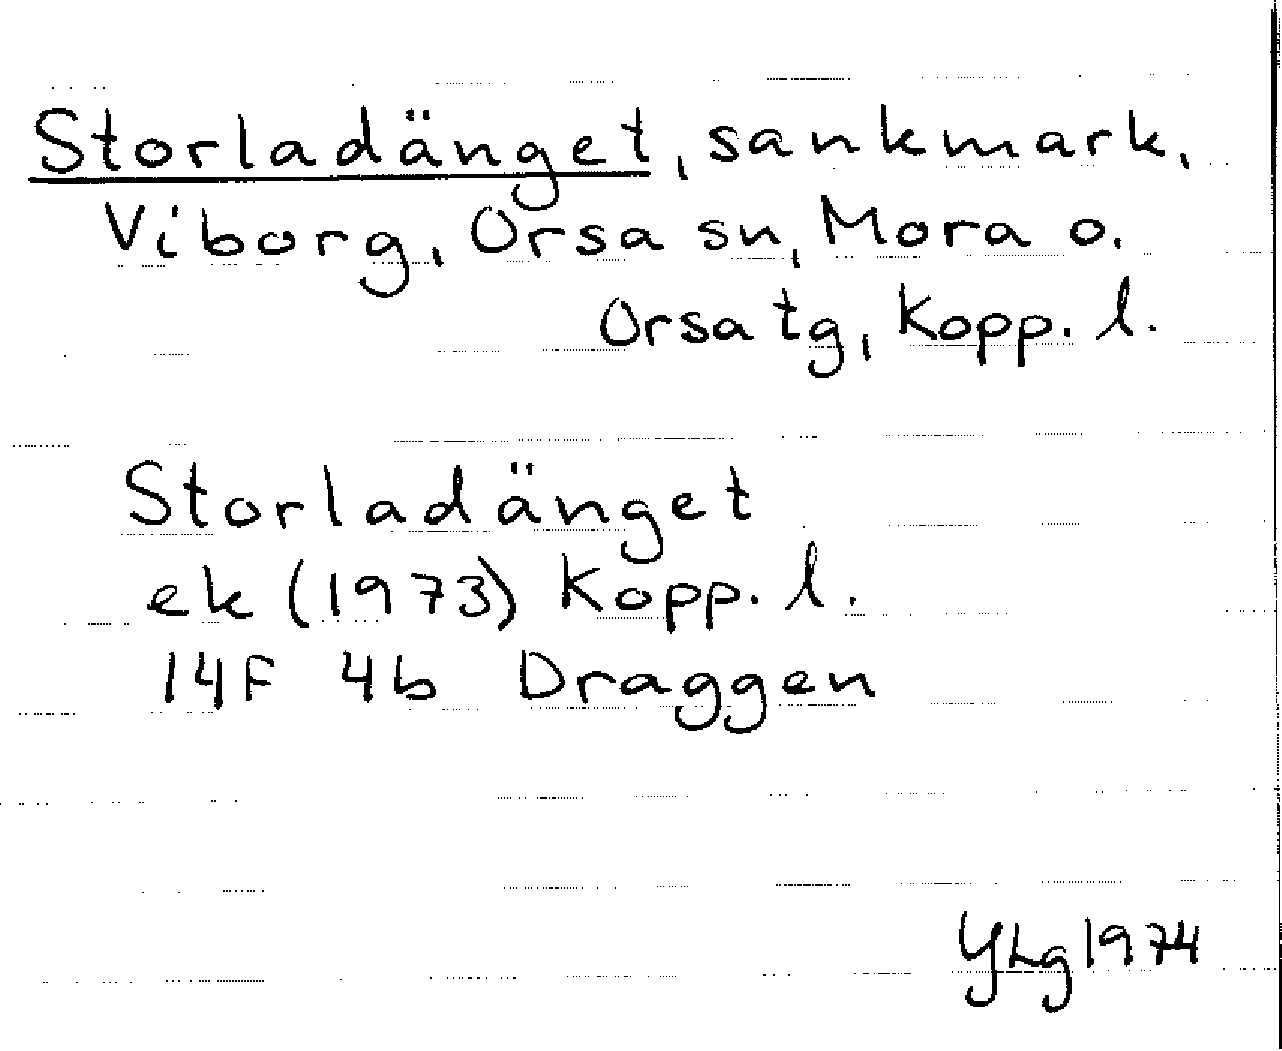 Storladänget, sankmark,
Viborg, Orsa sn, Mora o.
Orsa tg, Kopp. l.
Storladänget
ek (1973) Kopp. l.
14F 4b Draggen
YLg 1974